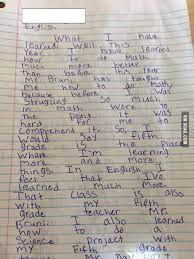 English
What I have
learned. Well this
year I have learned
how to do Math
much more better
than before this year
Mr. Bruni has taught
me how to do math
because before I was
struggling so much
in math were to
the point it was
hard for me to
Comprehend it. So,
Would say fifth
grade is the place
where I'm learning
more and more
things. In English
I feel that I've
learned much More
That class is also
with my fifth
grade teacher Mr.
Bruni. I also learned
how to do a
Science Project with
my grade
VIA 9GAG.COM